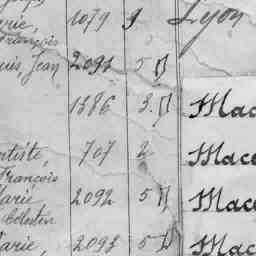 rie, 1079 9 Lyon
François
uis, Jean 2091 5
1386 3. Mac
ptiste, 707 2 Mace
François
Marie, 2092 5 Mace
Célestin
Marie, 2093 5 Mac